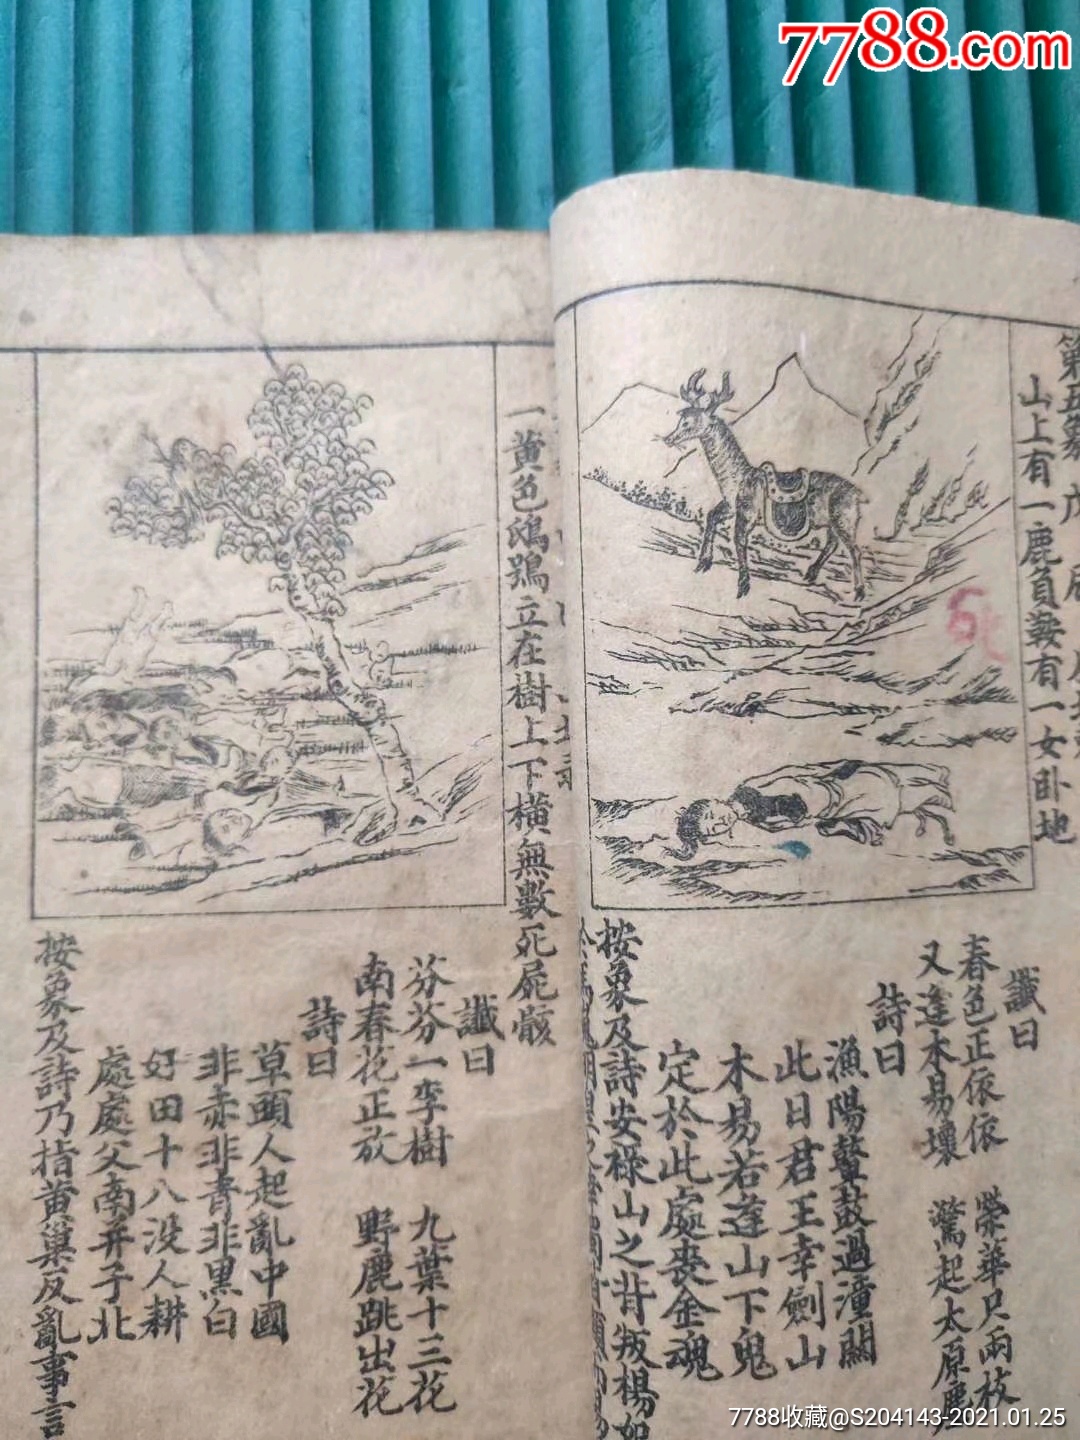 7788.com
第五象 戊辰
山上有一鹿負鞍有一女卧地
讖曰
春色正依依 榮華只兩枝
又逢木易壞 驚起太原鹿
詩曰
漁陽鼙鼓過潼關
此日君王幸劍山
木易若逢山下鬼
定於此處喪金魂
按象及詩安祿山之背叛楊妃
一黄色鴟鴞立在樹上下橫無數死屍骸
讖曰
芬芬一李樹 九葉十三花
南春花正放 野鹿跳出花
詩曰
草頭人起亂中國
非赤非青非黑白
好田十八没人耕
處處父南并子北
按象及詩乃指黄巢反亂事言
7788收藏@S204143-2021.01.25